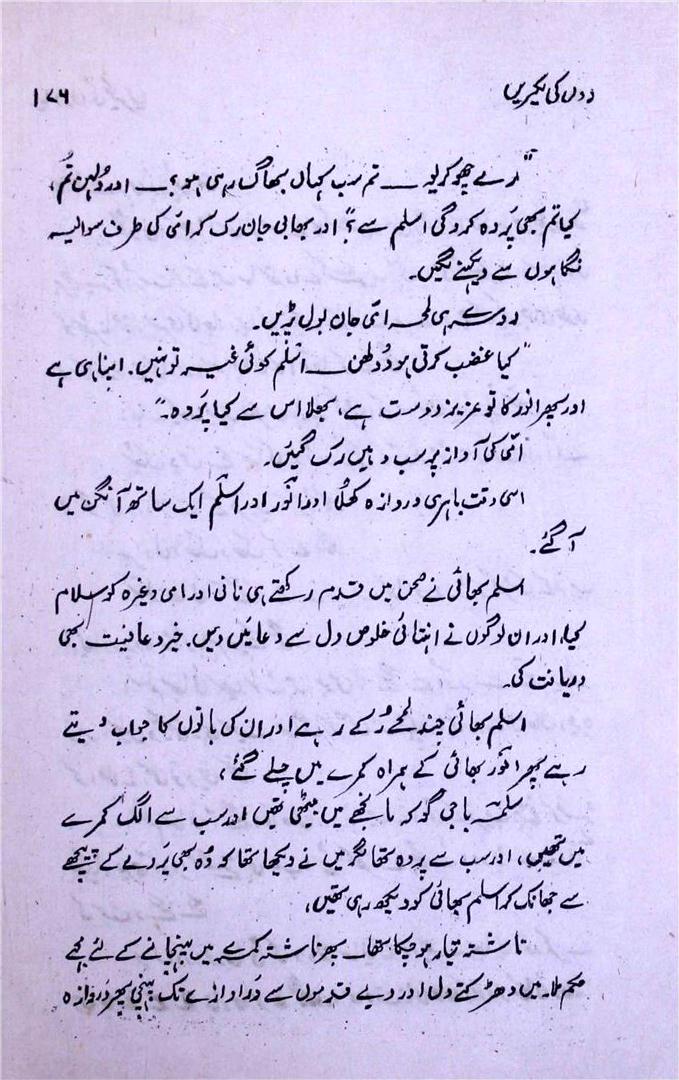 دوں کی لکیریں
۱۷۶
"ارے چھوکریو — تم سب کہاں بھاگ رہی ہو؟ — اور دُلہن تُم،
کیا تم بھی پردہ کروگی اسلم سے؟" اور بھابی جان رک کر امّی کی طرف سوالیہ
نگاہوں سے دیکھنے لگیں۔
دوسرے ہی لمحہ امّی جان بول پڑیں۔
"کیا غضب کرتی ہو دُولھن — اسلم کوئی غیر تو نہیں۔ اپنا ہی ہے
اور پھر انور کا تو عزیز دوست ہے، بھلا اس سے کیا پَردہ۔"
امّی کی آواز پر سب وہیں رک گئیں۔
اسی وقت باہری دروازہ کھلا اور انور اور اسلم ایک ساتھ آنگن میں
آگئے۔
اسلم بھائی نے صحن میں قدم رکھتے ہی نانی اور امی وغیرہ کو سلام
کیا، اور ان لوگوں نے انتہائی خلوص دل سے دعائیں دیں۔ خیر و عافیت بھی
دریافت کی۔
اسلم بھائی چند لمحے رُکے رہے اور ان کی باتوں کا جواب دیتے
رہے پھر انور بھائی کے ہمراہ کمرے میں چلے گئے،
سلمہ باجی گو کہ مانجھے میں بیٹھی تھیں اور سب سے الگ کمرے
میں تھیں، اور سب سے پردہ تھا مگر میں نے دیکھا تھا کہ وُہ بھی پَردے کے پیچھے
سے جھانک کر اسلم بھائی کو دیکھ رہی تھیں،
ناشتہ تیار ہو چکا تھا۔ پھر ناشتہ کمرے میں پہنچانے کے لئے مجھے
حکم ملا۔ میں دھڑکتے دل اور دبے قدموں سے دروازے تک پہنچی پھر دروازہ